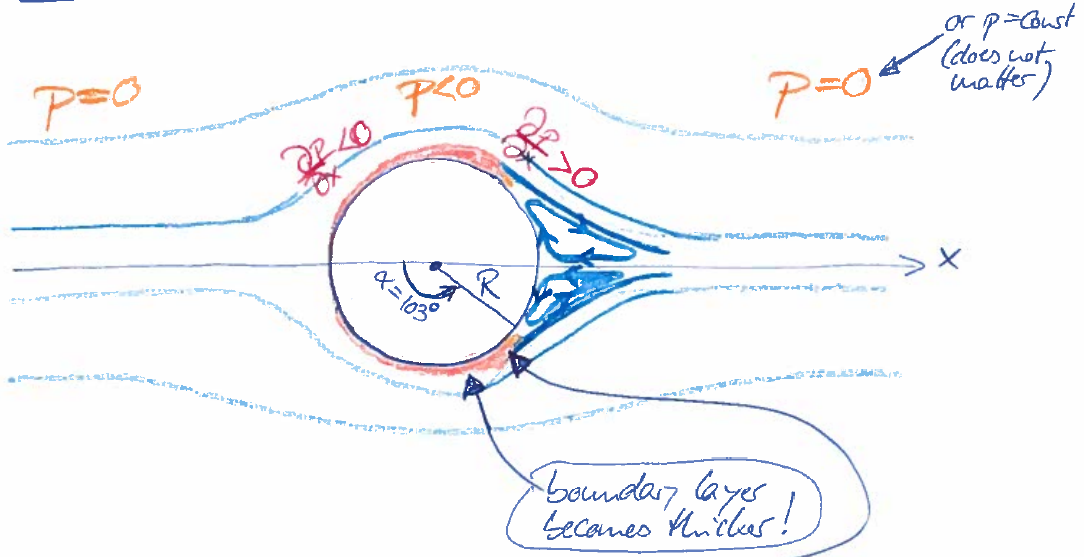 or p=const
(does not
matter)
P=0
P<0
P=0
∂P/∂x <0
∂P/∂x >0
x
R
α=103°
boundary layer
becomes thicker!